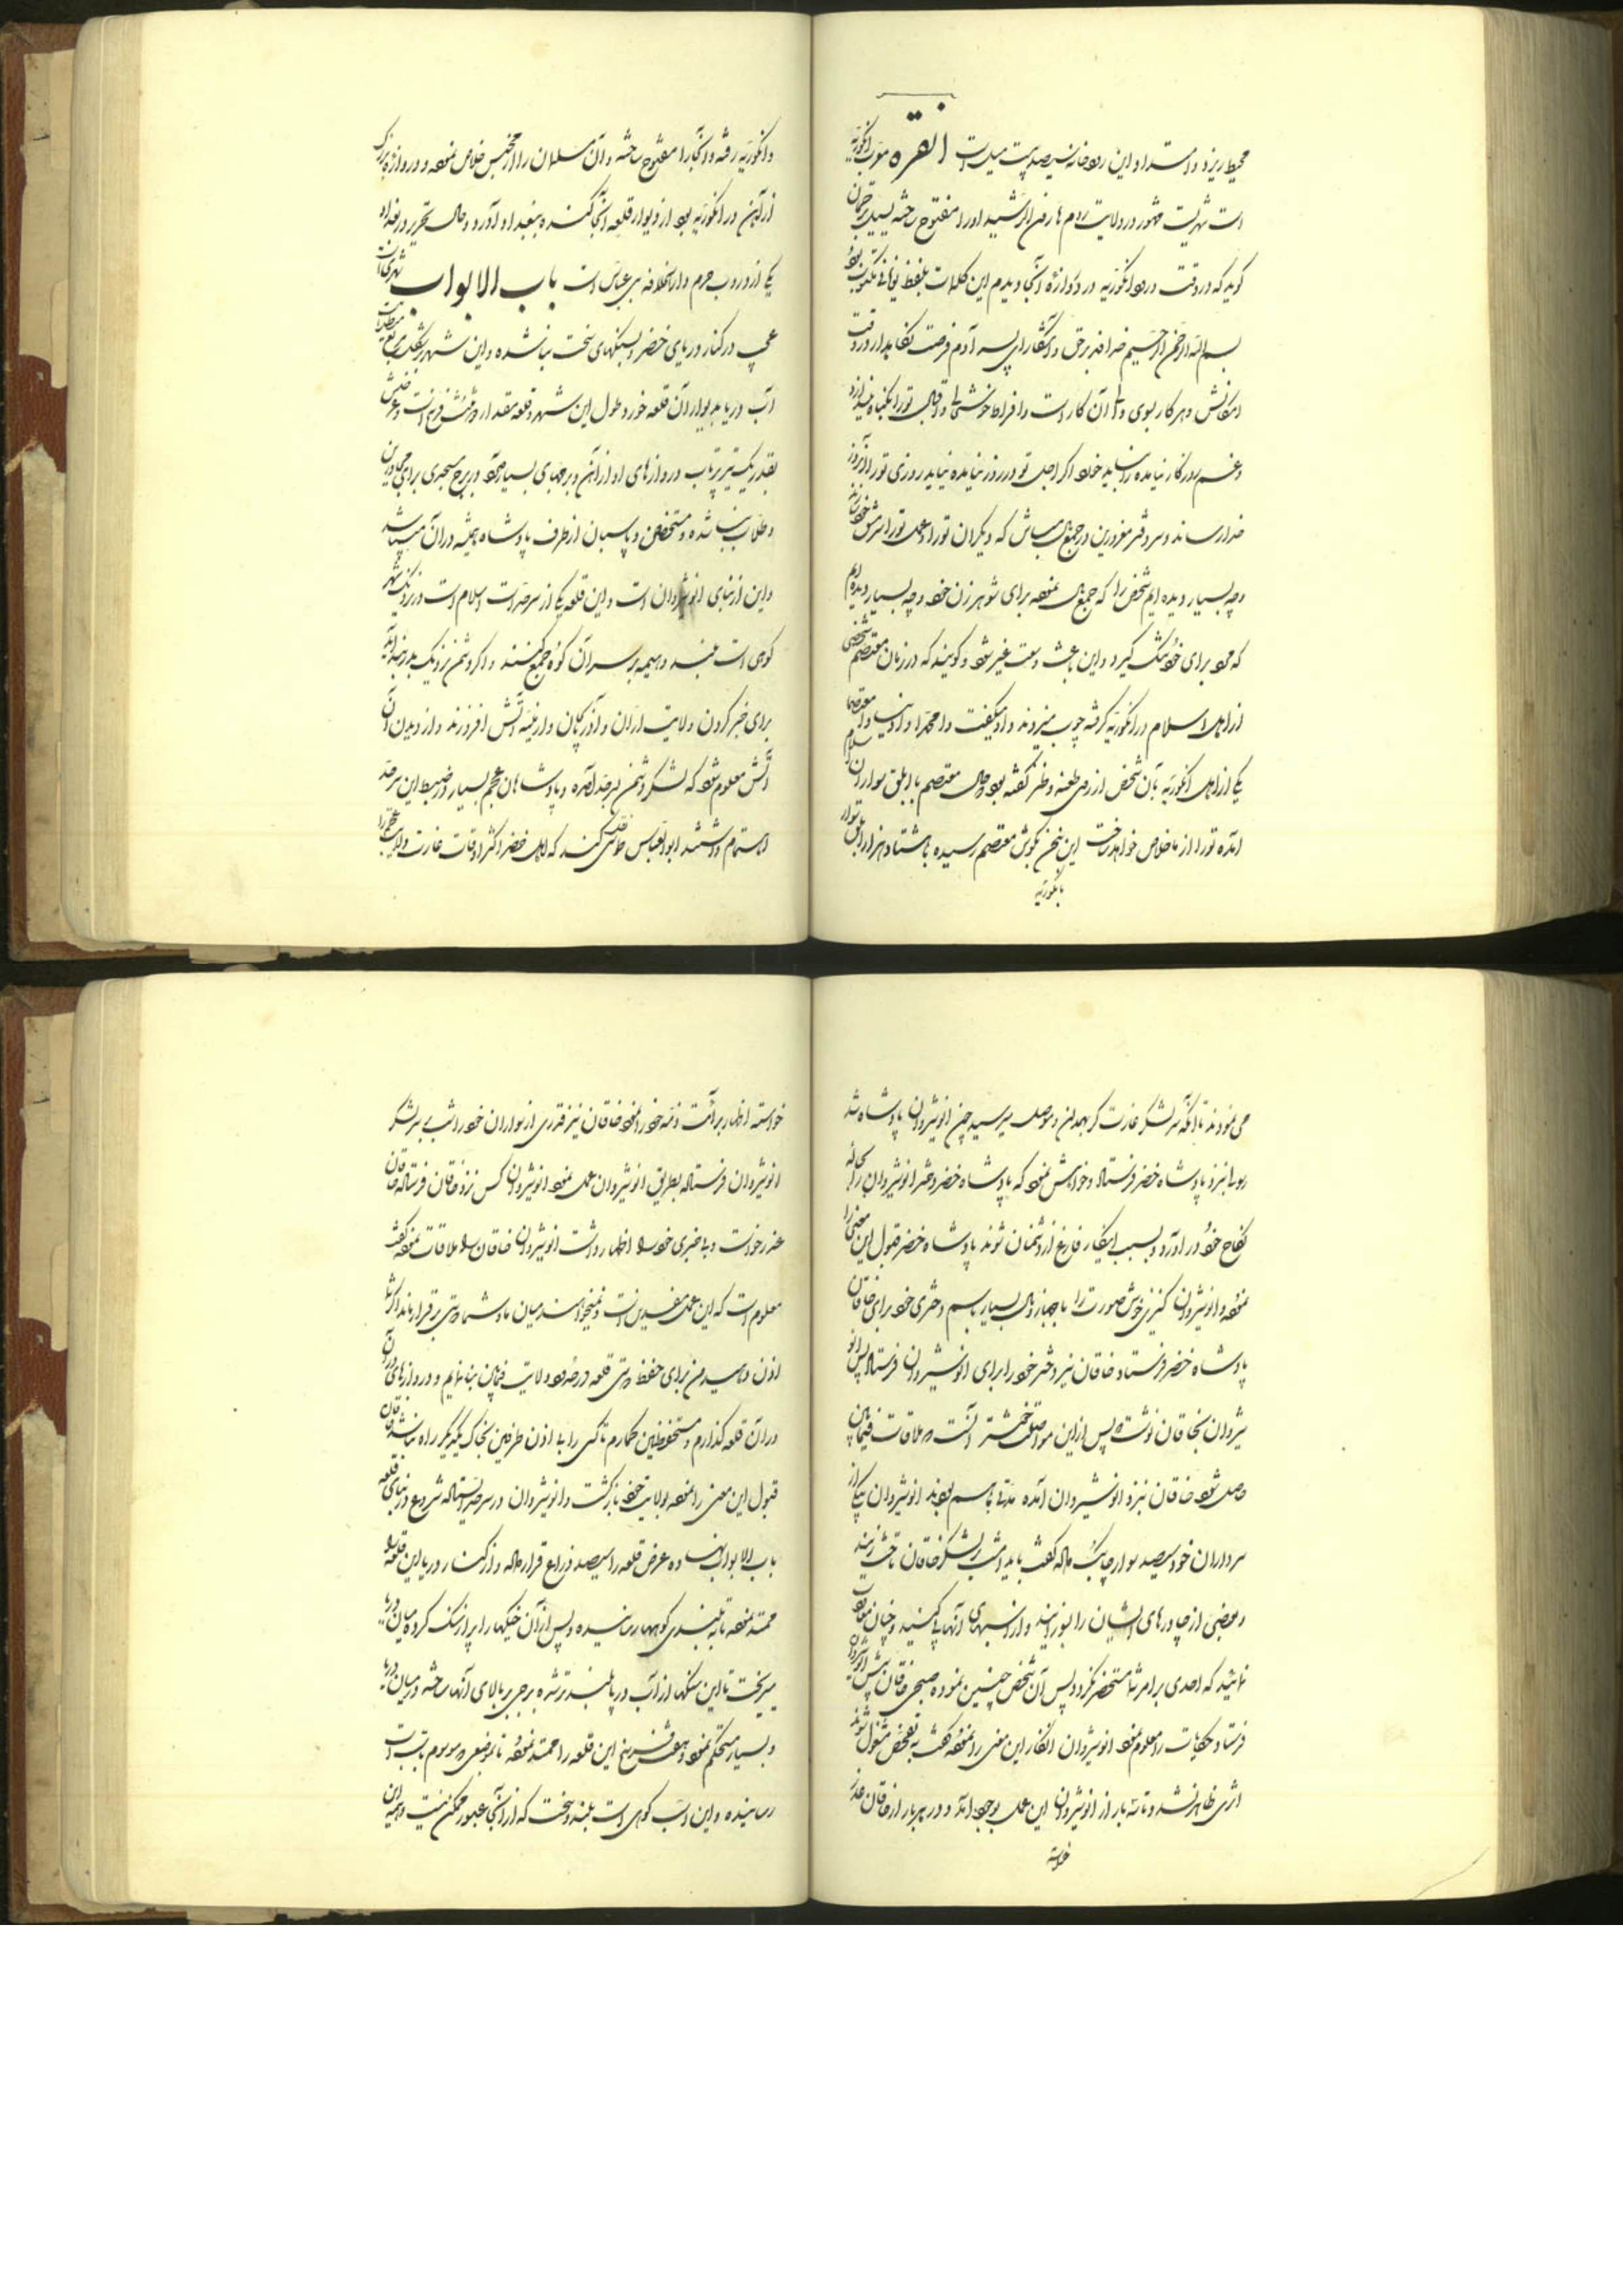 محیط ریزد و امتداد این رودخانه سیصد و بیست میل است انقره معرب انکوریه
است شهریست مشهور در ولایت روم هارون الرشید او را مفتوح ساخته بسیل ترجمان
کوید که در وقت ورود انکوریه در دروازهٔ آنجا دیدم این کلمات بلفظ یونانی مکتوب بود
بسم الله الرحمن الرحیم خدای برحق و آشکار ای پسر آدم فرصت نکاه دار در وقت
امکانش و هر کار بسوی والی آن کار است و افراط خوشحالی و اقبال تو را بکناه نیندازد
و غم روزکار نیامده را نباید خورد اکر اجل تو در روز نیامده نیاید روزی تو را در آن روز
خدا رساند و سر دفتر مغرورین در جمع مال مباش که دیکران تو را در عمل تو سرمشق خود سازند
و چه بسیار دیده ایم شخص را که جمع مال نموده برای شوهر زن خود و چه بسیار دیده ایم
که مرد برای خود تنک کیرد و این باعث وسعت غیر شود و کویند که در زمان معتصم شخصی
از اهل اسلام در انکوریه کرفته چوب میزدند و او میکفت وا محمدا وا دینا وا معتصما
یکی از اهل انکوریه بآن شخص از روی طعنه و طنز کفته بود حال معتصم با ابلق سواران اسلام
آمده تو را از ما خلاص خواهد ساخت این سخن بکوش معتصم رسیده با هشتاد هزار ابلق سوار
بانکوریه
و انکوریه رفته و آنجا را مفتوح ساخته و آن مسلمان را از محبس خلاص نموده و دروازه بزرک
از آهن در انکوریه بود از دیوار قلعه آنجا کنده ببغداد آورد و حال تحریر در بغداد
یکی از دروب حرم و دار الخلافه بنی عباس است باب الابواب شهری است
عجیب در کنار دریای خضر و بسنکهای سخت بنا شده و این شهر بشکل مربع مستطیل است
آب دریا بدیوار آن قلعه خورد و طول این شهر و قلعه مقدار دو ثلث فرسخ است و عرضش
بقدر یک تیر پرتاب دروازهای او از آهن و برجهای بسیار دارد و در هر برج مسجدی برای مجاورین
و طلاب بنا شده و مستحفظ و پاسبان از طرف پادشاه همیشه در آن میباشد
و این از بنای انوشیروان است و این قلعه یکی از سرحدات اسلام است در نزدیک شهر
کوهی است بلند و هیمه بر سر آن کوه جمع کنند و اکر دشمن نزدیک بدر بند آید
برای خبر کردن ولایت اران و آذربایجان و ارمنیه آتش افروزند و از دیدن آن
آتش معلوم شود که لشکر دشمن بسرحد آمده و پادشاهان عجم بسیار در ضبط این سرحد
اهتمام داشتند ابو العباس طوسی نقل کند که اهل خضر اکثر اوقات غارت ولایت عجم را
می نمودند تا آنکه سر لشکر غارت کر بهمدان و موصل میرسید چون انوشیروان پادشاه شد
رسولی نزد پادشاه خضر فرستاد و خواهش نمود که پادشاه خضر دختر انوشیروان را بحباله
نکاح خود در آورد و بسبب اینکار فارغ از دشمنان شوند پادشاه خضر قبول این معنی را
نموده و انوشیروان کنیزی خوش صورت را با جهاز و مال بسیار باسم دختری خود برای خاقان
پادشاه خضر فرستاد و خاقان نیز دختر خود را برای انوشیروان فرستاد پس انو
شیروان بخاقان نوشت پس از این مواصلت خوشتر آنست که ملاقات فیمابین
حاصل شود خاقان نزد انوشیروان آمده مدتی با هم بودند انوشیروان یکی از
سرداران خود سیصد سوار چابک داده کفت باید امشب بر لشکر خاقان تاخت آورید
و بعضی از چادرهای ایشان را بسوزانید و از اسبهای آنها پی کنید و چنان معاودت
نمائید که احدی بر امر شما مستحضر نکردد پس آن شخص چنین نموده صبحی خاقان پیش انوشیروان
فرستاد و حکایات را معلوم نمود انوشیروان انکار این معنی را نموده کفت به تفحص مشغول شوند
اثری ظاهر نشد و تا سه بار از انوشیروان این عمل بوجود آمد و در هر بار از خاقان عذر
خواسته
خواسته اظهار برائت ذمه خود را نمود خاقان نیز قدری از سواران خود را شب بسر لشکر
انوشیروان فرستاده بطریق انوشیروان عمل نمود انوشیروان کس نزد خاقان فرستاد خاقان
عذر خواست و بی خبری خود را اظهار داشت انوشیروان خاقان را ملاقات نموده کفت
معلوم است که این عمل مفسدین است و نمیخواهند میان ما و شما دوستی برقرار ماند اکر شما
اذن دهید من برای حفظ دوستی قلعه در حدود ولایت فیمابین بنا نمایم و دروازهای در آن
در آن قلعه کذارم و مستحفظین کمارم تا کسی را بی اذن طرفین بخاک یکدیکر راه نباشد خاقان
قبول این معنی را نموده بولایت خود بازکشت و انوشیروان در سرحد ایستاده شروع در بنای قلعه
باب الابواب نهاده عرض قلعه را سیصد ذراع قرار داده و از کنار دریا این قلعه را
ممتد نموده تا به بلندی کوهها رسانیده و پس از آن خیکها را پر از سنک کرده میان دریا
میریخت تا این سنکها از آب دریا بلندتر شده برجی بر بالای آنها ساخته در میان دریا
و بسیار مستحکم نمود و هفت فرسخ این قلعه را ممتد نموده تا بموضعی که موسوم بآب است
رسانیده و این آب کوهی است بلند و سخت که از آنجا عبور ممکن نیست و همه این